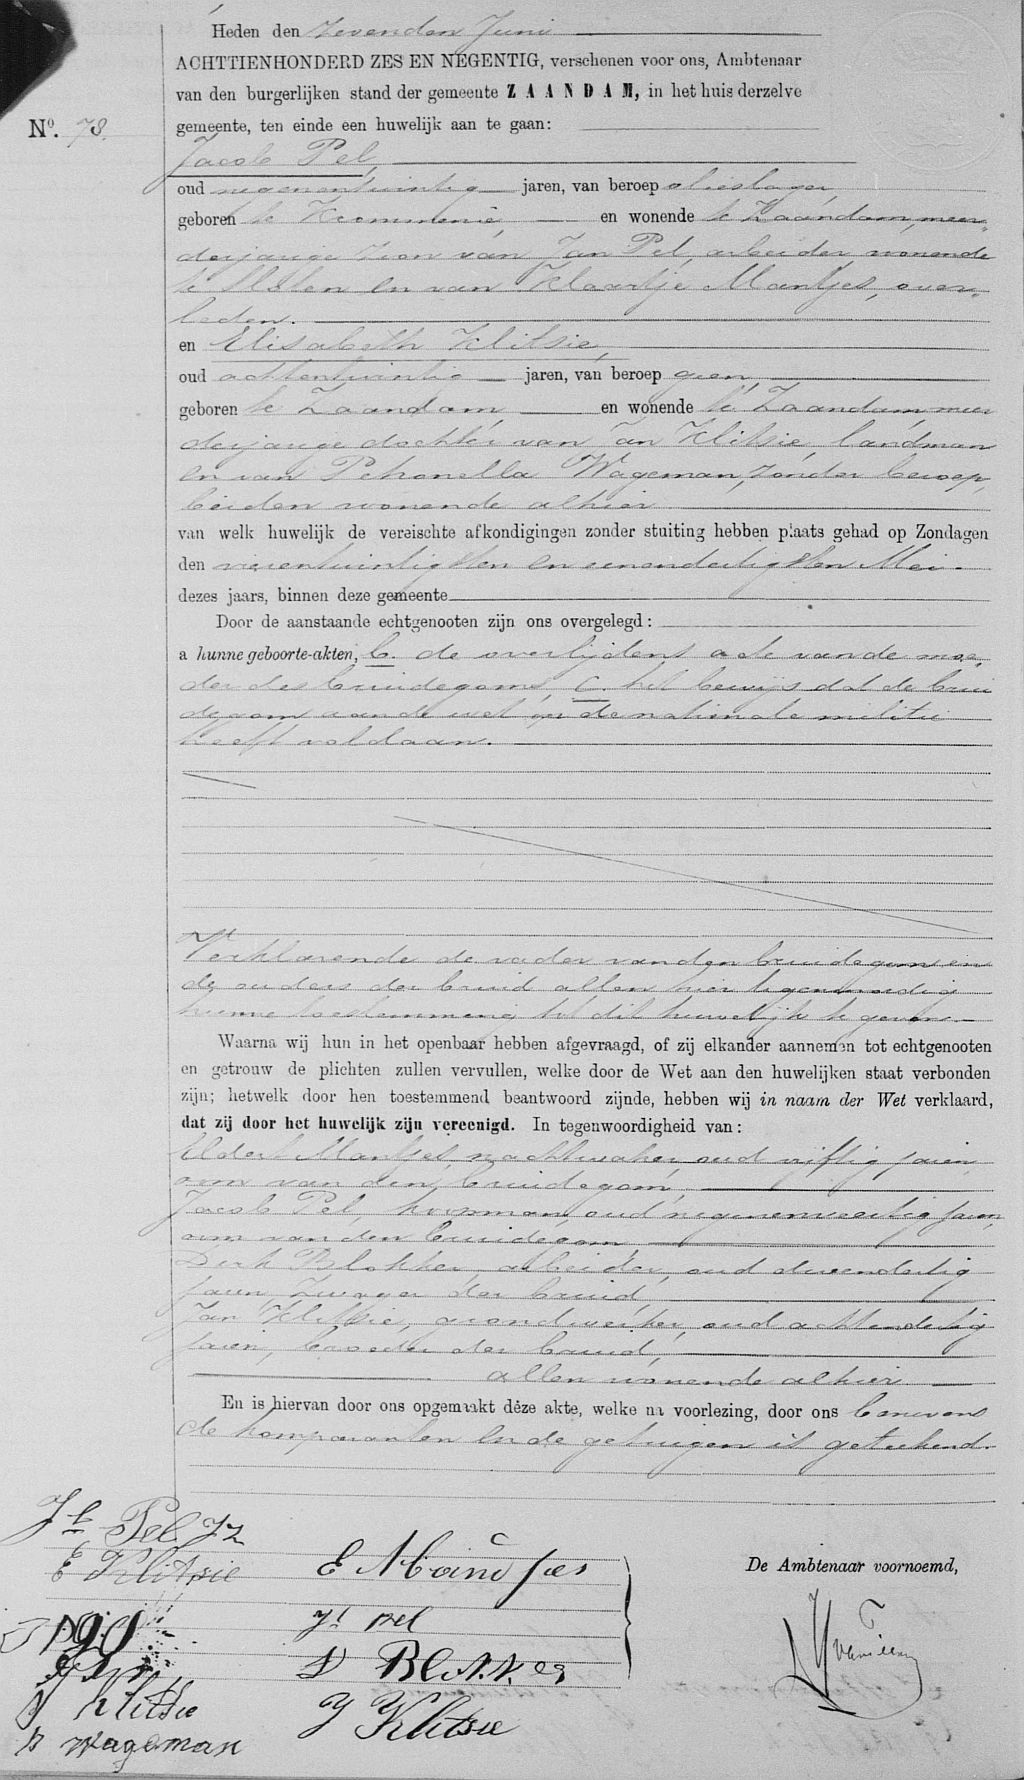 Heden den zevenden Juni
ACHTTIENHONDERD ZES EN NEGENTIG, verschenen voor ons, Ambtenaar
van den burgerlijken stand der gemeente ZAANDAM, in het huis derzelve
No. 78.
gemeente, ten einde een huwelijk aan te gaan:
Jacob Pel,
oud negenentwintig jaren, van beroep olieslager,
geboren te Krommenie, en wonende te Zaandam, meer-
derjarige zoon van Jan Pel, arbeider, wonende
te en van Klaartje Mantjes, over-
leden.
en Elisabeth Klitsie,
oud achtentwintig jaren, van beroep geen,
geboren te Zaandam en wonende te Zaandam, meer
derjarige dochter van Jan Klitsie, landman
en van Petronella Wageman, zonder beroep,
beiden wonende alhier
van welk huwelijk de vereischte afkondigingen zonder stuiting hebben plaats gehad op Zondagen
den vierentwintigsten en eenendertigsten Mei
dezes jaars, binnen deze gemeente
Door de aanstaande echtgenooten zijn ons overgelegd:
a hunne geboorte-akten, b. de overlijdens acte van de moe-
der des bruidegoms, c. het bewijs dat de brui
degom aan de wet op de nationale militie
heeft voldaan.
Verklarende de vader van den bruidegom en
de ouders der bruid allen hier tegenwoordig
hunne toestemming tot dit huwelijk te geven.
Waarna wij hun in het openbaar hebben afgevraagd, of zij elkander aannemen tot echtgenooten
en getrouw de plichten zullen vervullen, welke door de Wet aan den huwelijken staat verbonden
zijn; hetwelk door hen toestemmend beantwoord zijnde, hebben wij in naam der Wet verklaard,
dat zij door het huwelijk zijn vereenigd. In tegenwoordigheid van:
Eldert Mantjes, nachtwaker, oud vijftig jaren
oom van den bruidegom,
Jacob Pel, koopman, oud negenenveertig jaren,
oom van den bruidegom,
Dirk Blokker, arbeider, oud
jaren, zwager der bruid,
Jan Klitsie, grondwerker, oud achtendertig
jaren, broeder der bruid,
allen wonende alhier
En is hiervan door ons opgemaakt deze akte, welke na voorlezing, door ons benevens
de komparanten en de getuigen is geteekend.
Jb Pel Jz
E Klitsie
E Mantjes
De Ambtenaar voornoemd,
Jb Pel
D Blokker
J Klitsie
J Klitsie
P Wageman